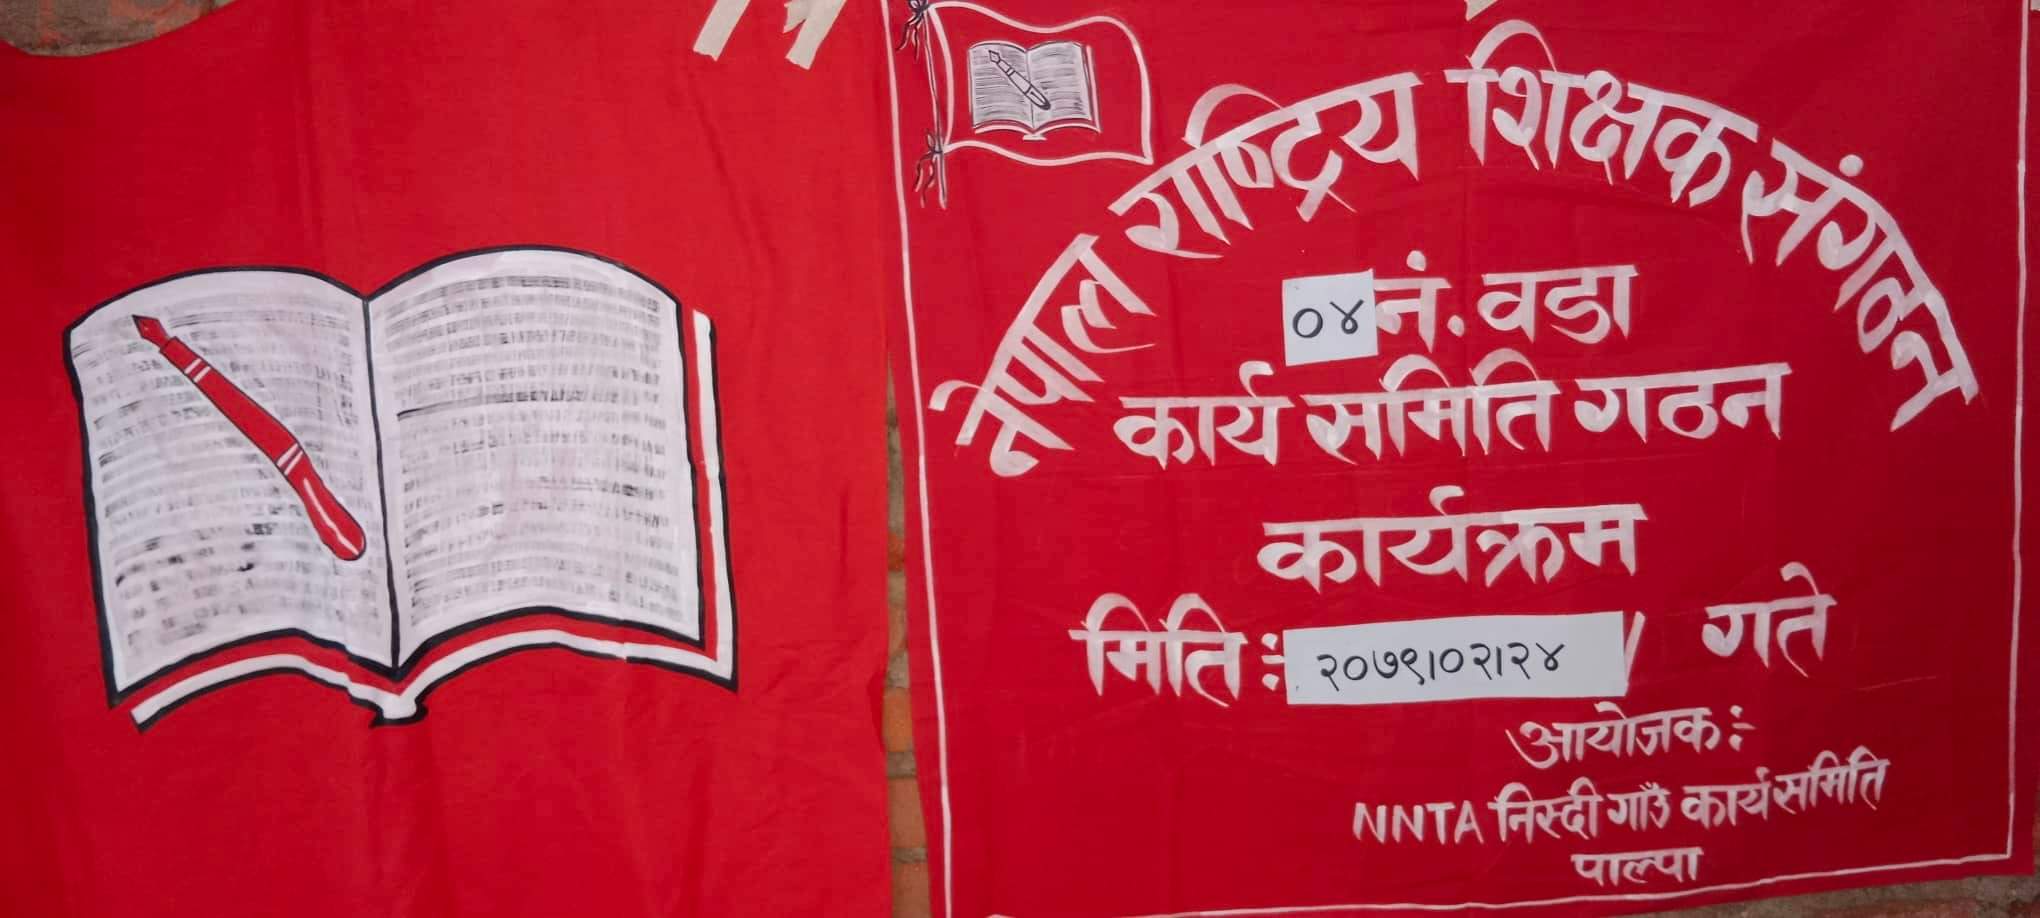 नेपाल राष्ट्रिय शिक्षक संगठन
०४ नं. वडा
कार्य समिति गठन
कार्यक्रम
मिति : २०७९।०२।२४ / गते
आयोजक :
NNTA निस्दी गाउँ कार्यसमिति
पाल्पा